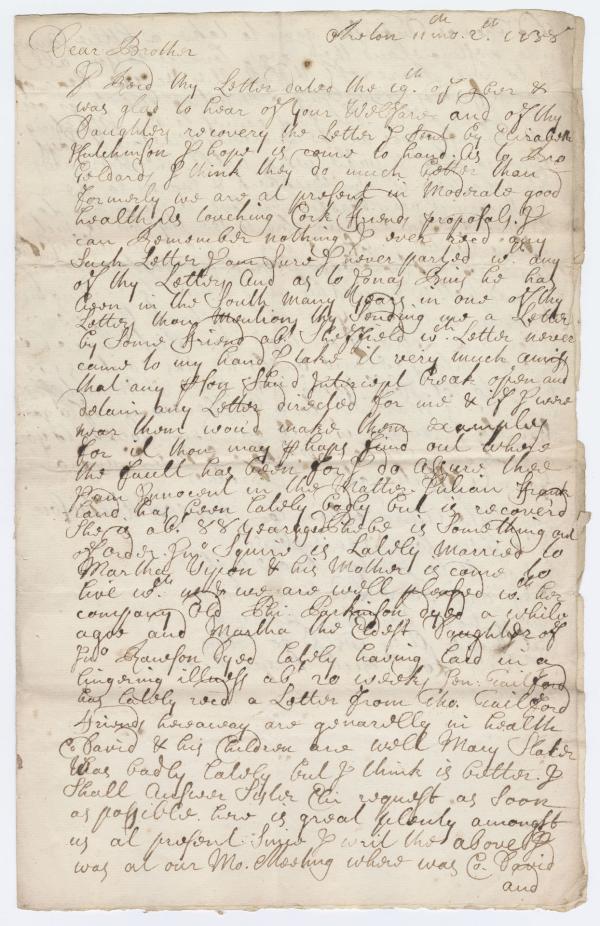 11th mo. 2th 1738
Dear Brother
I Recd thy Letter dated the 19th of 9ber &
was glad to hear of your Welfare and of thy
Daughters recovery the Letter I Sent by Elizabeth
Hutchinson I hope is come to hand. As to Bro
Geldards I think they do much better than
formerly we are at present in Moderate good
health As touching Cork Friends proposals. I
can Remember nothing I ever recd any
Such Letter I am Sure I never parted wth any
of thy Letters And as to Jonas Binns he has
been in the South Many Years in one of thy
Letters thou Mentions thy Sending me a Letter
by Some Friend abt Sheffield wch Letter never
came to my hand I take it very much amiss
that any pson Shud Intercept break open and
detain any Letter directed for me & if I were
near them woud make them examples
for it thou may phaps find out where
the fault has been for I do assure thee
I am Innocent in the Matter. Julian Frank
land has been lately badly but is recoverd
She is abt 88 years Phebe is Something out
of order. Jno Squire is Lately Married to
Martha Dixon & his Mother is come to
live wth us & we are well pleased wth her
company Old Chr. Parkinson dyed a while
agoe and Martha the Eldest Daughter of
Jno Raneson Dyed lately having laid in a
lingering illness abt 20 weeks
has lately recd a Letter from Tho.
Friends hereaway are generally in health
C. David & his Children are well Mary Slater
Was badly lately but I think is better. I
Shall answer Sister request as Soon
as possible. here is great plenty amongst
us at present Since I writ the above I
was at our Mo. Meeting where was C. David
and